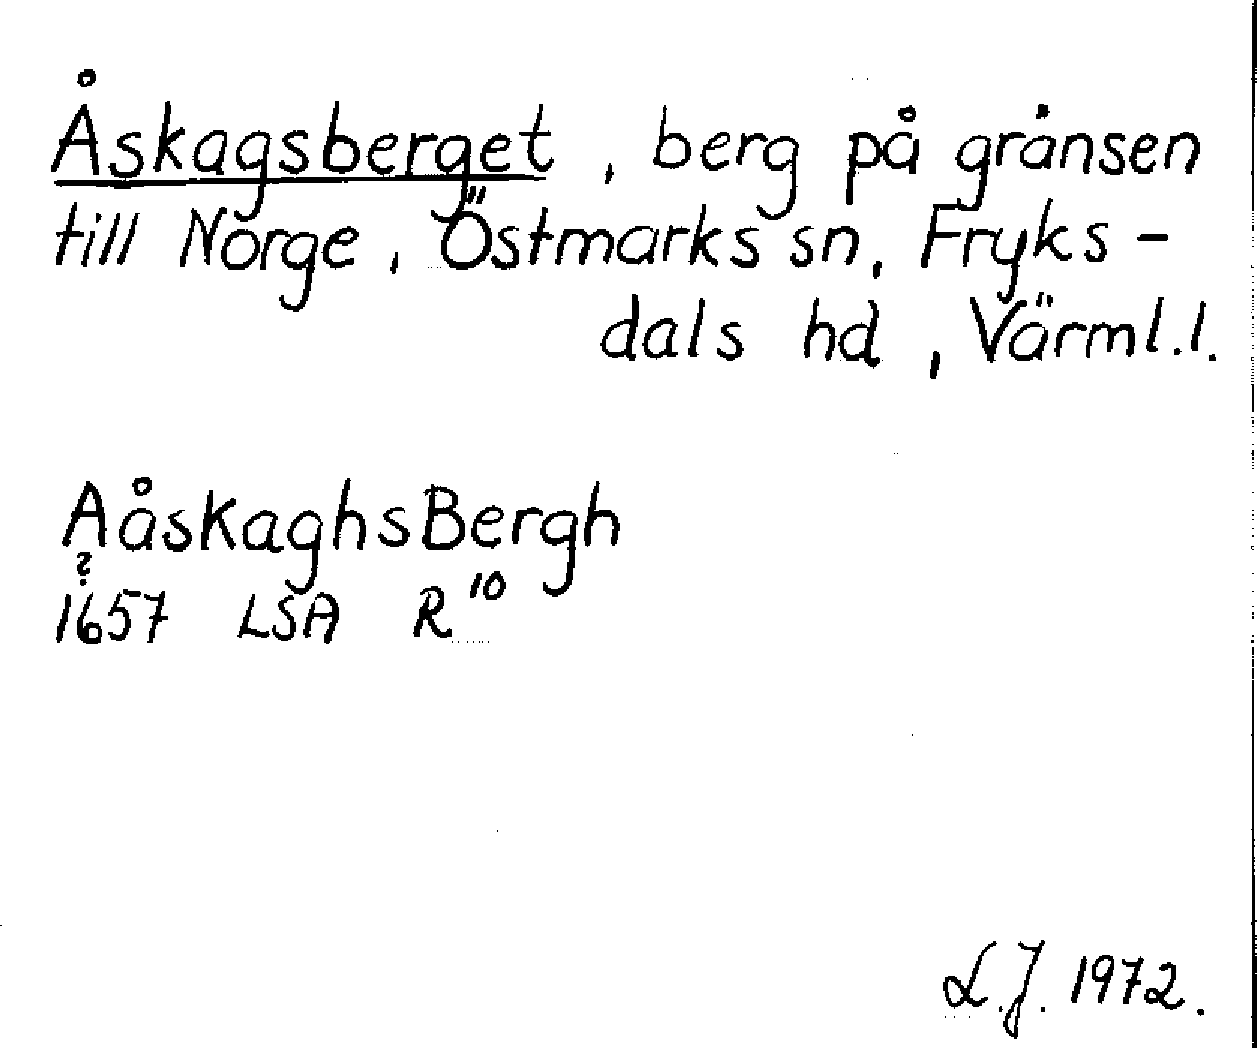 Åskagsberget, berg på gränsen
till Norge, Östmarks sn, Fryks-
dals hd, Värml.l.
AåskaghsBergh
?
1657 LSA R¹⁰
L.J. 1972.